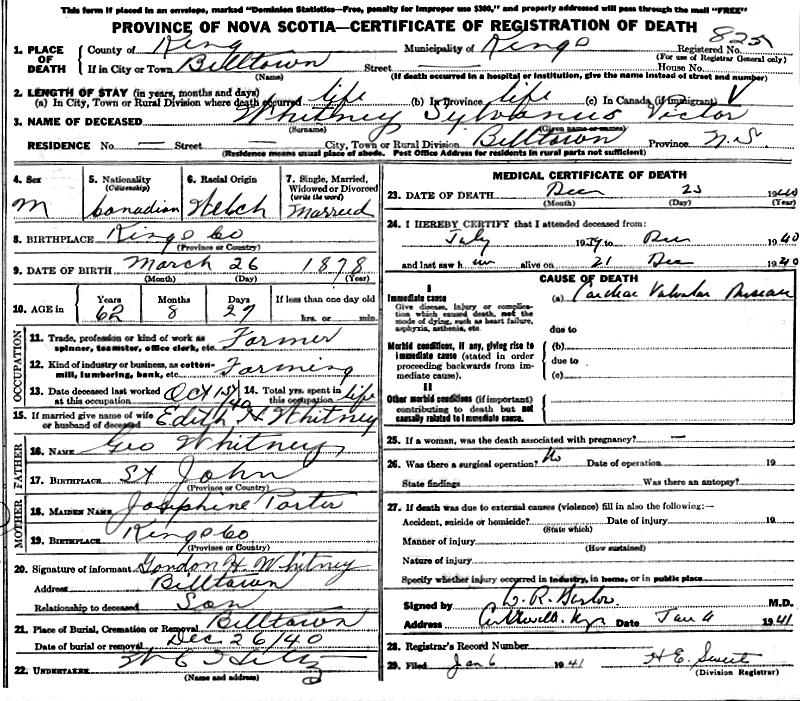 This form if placed in an envelope, marked "Dominion Statistics—Free, penalty for improper use $300," and properly addressed will pass through the mail "FREE"
PROVINCE OF NOVA SCOTIA—CERTIFICATE OF REGISTRATION OF DEATH
825
1. PLACE OF DEATH { County of Kings Municipality of Kings Registered No.
(For use of Registrar General only)
If in City or Town Billtown Street — House No.
(Name) (If death occurred in a hospital or institution, give the name instead of street and number)
2. LENGTH OF STAY (in years, months and days)
(a) In City, Town or Rural Division where death occurred life (b) In Province life (c) In Canada (if immigrant) ✓
3. NAME OF DECEASED Whitney Sylvanus Victor
(Surname) (Given name or names)
RESIDENCE No. — Street — City, Town or Rural Division Billtown Province N.S.
(Residence means usual place of abode. Post Office Address for residents in rural parts not sufficient)
4. Sex M
5. Nationality (Citizenship) Canadian
6. Racial Origin Welch
7. Single, Married, Widowed or Divorced (write the word) Married
8. BIRTHPLACE Kings Co
(Province or Country)
9. DATE OF BIRTH March 26 1878
(Month) (Day) (Year)
10. AGE in Years 62 Months 8 Days 27 If less than one day old
hrs. or min.
OCCUPATION
11. Trade, profession or kind of work as spinner, teamster, office clerk, etc. Farmer
12. Kind of industry or business, as cotton-mill, lumbering, bank, etc. Farming
13. Date deceased last worked at this occupation Oct 15/40 14. Total yrs. spent in this occupation life
15. If married give name of wife or husband of deceased Edith H Whitney
FATHER
16. NAME Geo Whitney
17. BIRTHPLACE St John
(Province or Country)
MOTHER
18. MAIDEN NAME Josephine Porter
19. BIRTHPLACE Kings Co
(Province or Country)
20. Signature of informant Gordon H. Whitney
Address Billtown
Relationship to deceased Son
21. Place of Burial, Cremation or Removal Billtown
Date of burial or removal Dec 26/40
22. UNDERTAKER W C
(Name and address)
MEDICAL CERTIFICATE OF DEATH
23. DATE OF DEATH Dec 23 1940
(Month) (Day) (Year)
24. I HEREBY CERTIFY that I attended deceased from:
July 1939 to Dec 1940
and last saw him alive on 21 Dec 1940
CAUSE OF DEATH
I
Immediate cause (a) Cardiac Valvular Disease
Give disease, injury or complication which caused death, not the mode of dying, such as heart failure, asphyxia, asthenia, etc.
due to
Morbid conditions, if any, giving rise to immediate cause (stated in order proceeding backwards from immediate cause).
(b)
due to
(c)
II
Other morbid conditions (if important) contributing to death but not causally related to immediate cause.
25. If a woman, was the death associated with pregnancy? —
26. Was there a surgical operation? No Date of operation 19
State findings Was there an autopsy?
27. If death was due to external causes (violence) fill in also the following:—
Accident, suicide or homicide? Date of injury 19
(State which)
Manner of injury
(How sustained)
Nature of injury
Specify whether injury occurred in industry, in home, or in public place
Signed by M.D.
Address Date Jan 4 1941
28. Registrar's Record Number
29. Filed Jan 6 1941 H E
(Division Registrar)